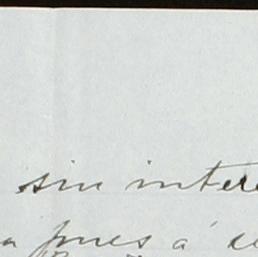 sin intere
pues á